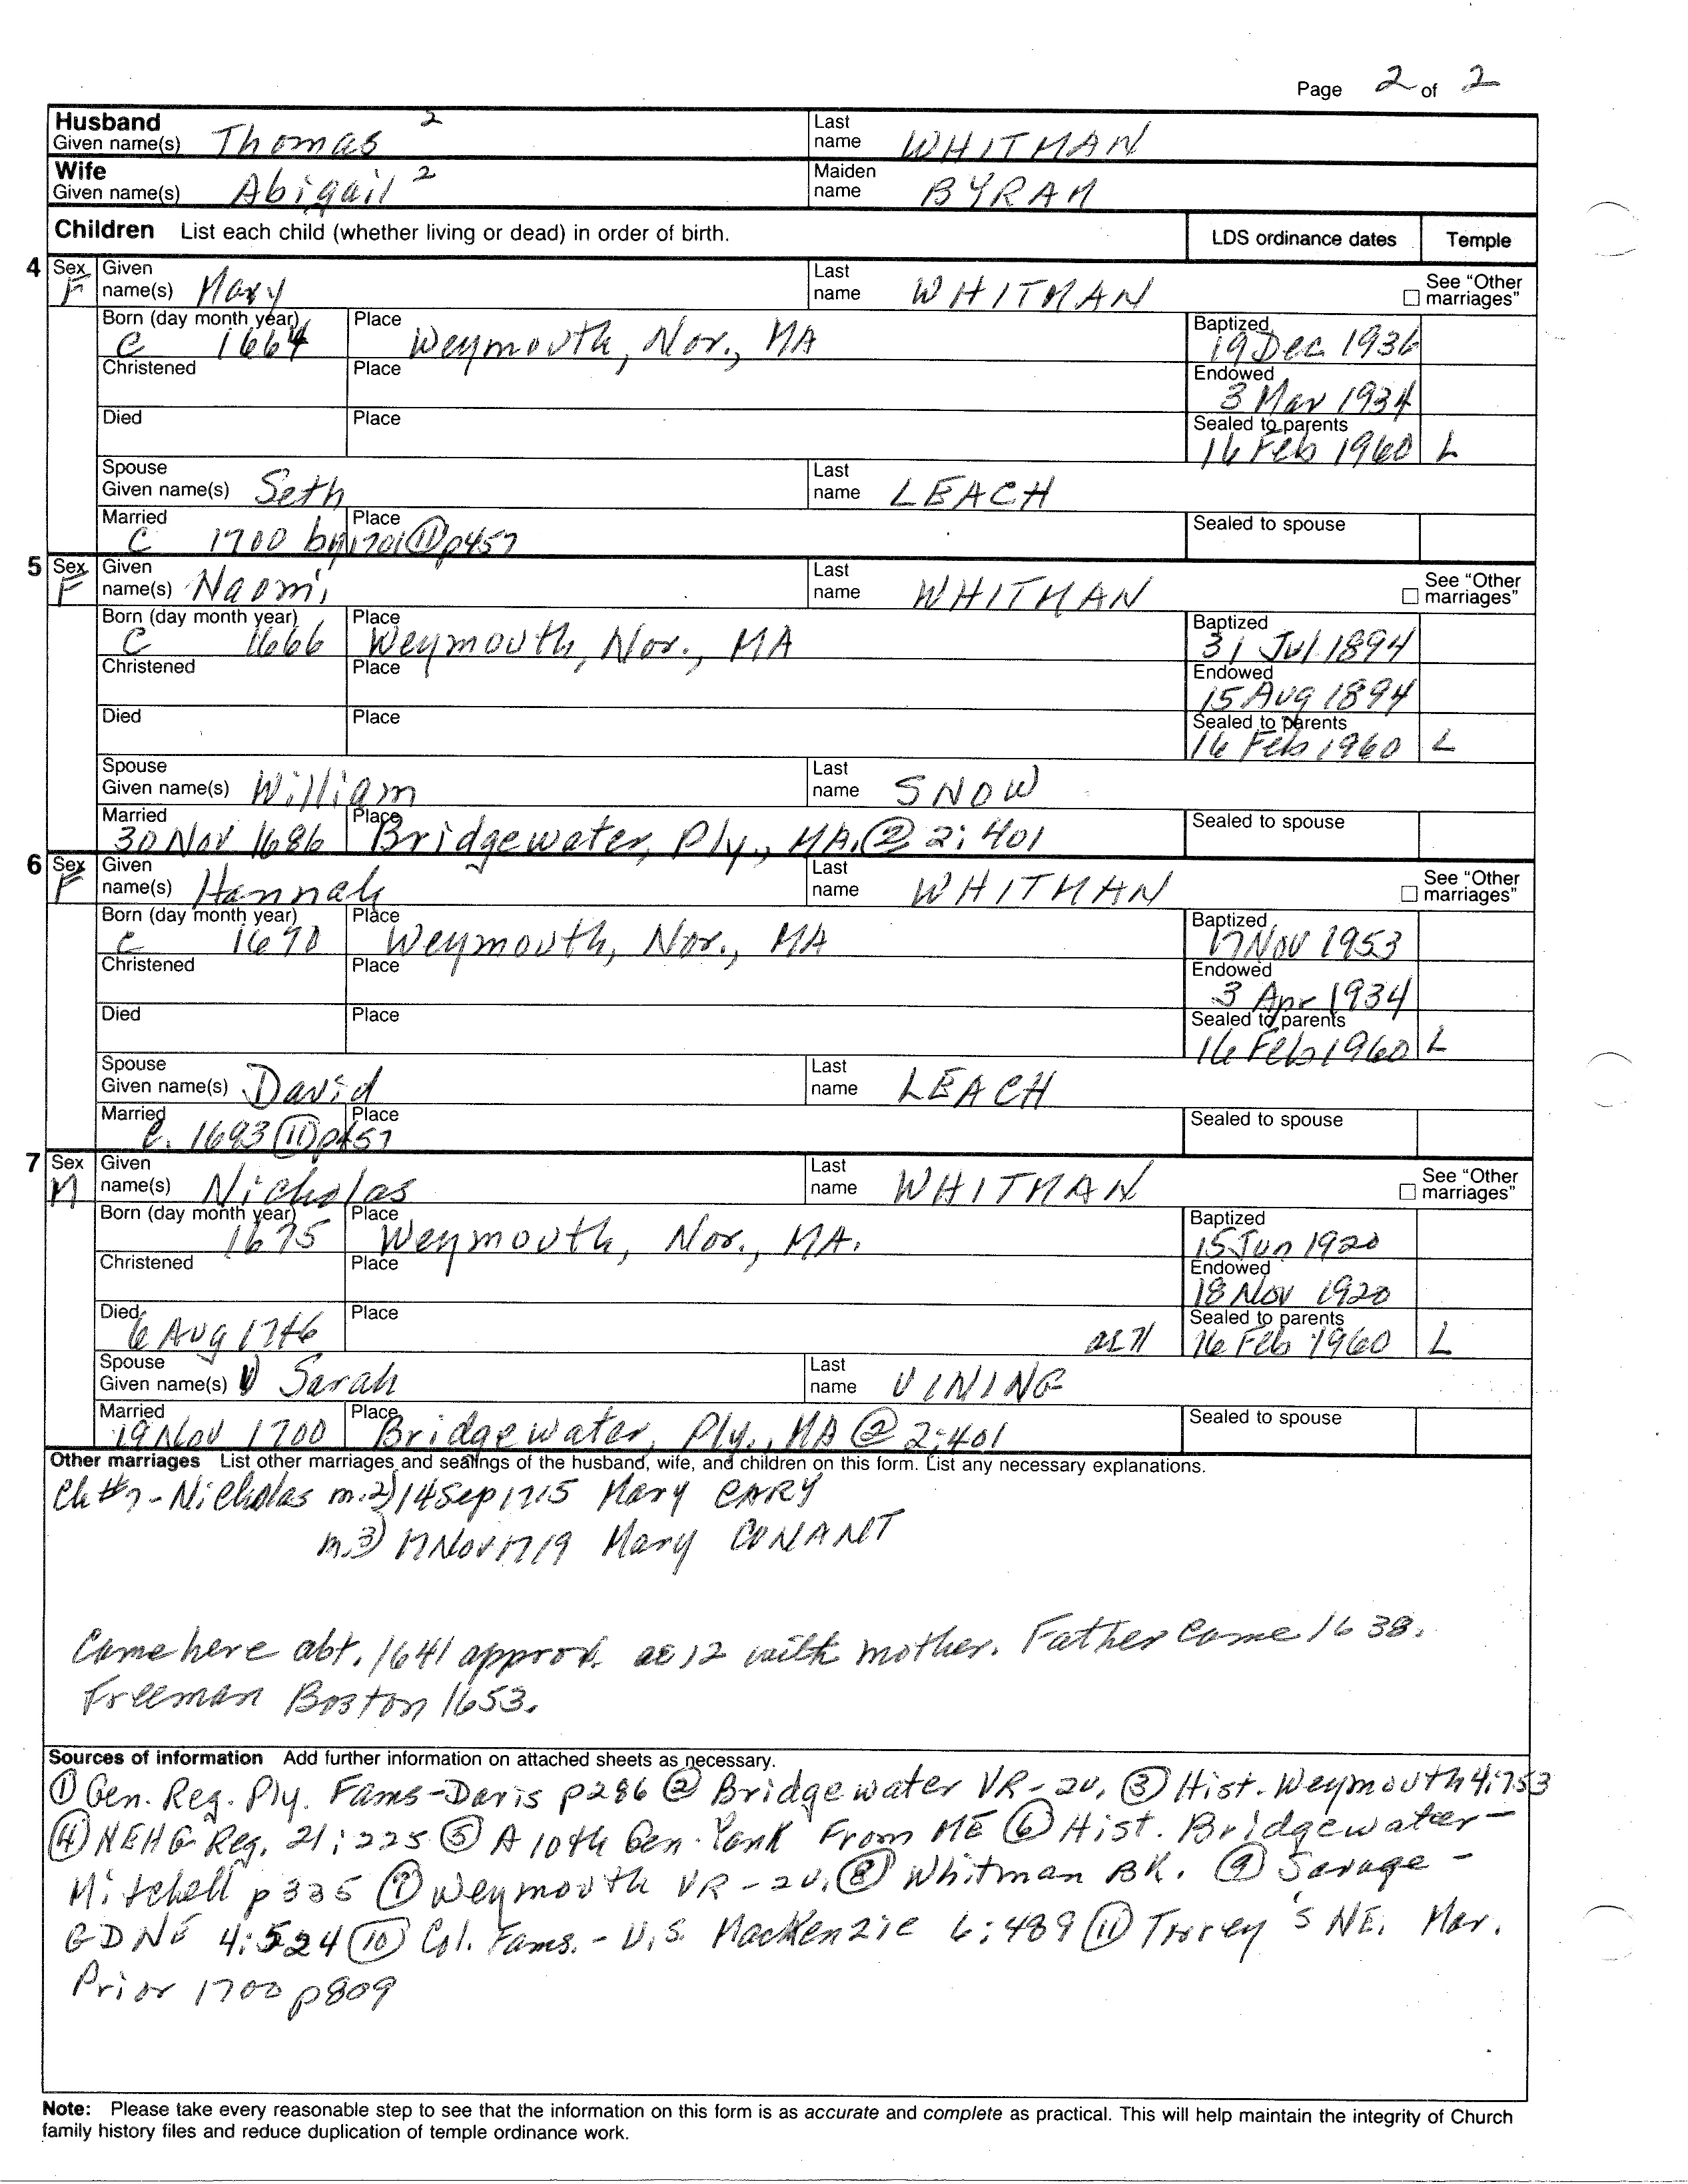 Page 2 of 2
Husband Given name(s) Thomas 2 Last name WHITMAN
Wife Given name(s) Abigail 2 Maiden name BYRAM
Children List each child (whether living or dead) in order of birth. LDS ordinance dates Temple
4 Sex F Given name(s) Mary Last name WHITMAN See "Other marriages"
Born (day month year) c 1664 Place Weymouth, Nor., MA Baptized 19 Dec 1936
Christened Place Endowed 3 Mar 1934
Died Place Sealed to parents 16 Feb 1960 L
Spouse Given name(s) Seth Last name LEACH
Married C 1700 by 1701 ⑪ p457 Place Sealed to spouse
5 Sex F Given name(s) Naomi Last name WHITMAN See "Other marriages"
Born (day month year) C 1666 Place Weymouth, Nor., MA Baptized 31 Jul 1894
Christened Place Endowed 15 Aug 1894
Died Place Sealed to parents 16 Feb 1960 L
Spouse Given name(s) William Last name SNOW
Married 30 Nov 1686 Place Bridgewater, Ply., MA. ② 2:401 Sealed to spouse
6 Sex F Given name(s) Hannah Last name WHITMAN See "Other marriages"
Born (day month year) c 1670 Place Weymouth, Nor., MA Baptized 17 Nov 1953
Christened Place Endowed 3 Apr 1934
Died Place Sealed to parents 16 Feb 1960 L
Spouse Given name(s) David Last name LEACH
Married c. 1693 ⑪ p457 Place Sealed to spouse
7 Sex M Given name(s) Nicholas Last name WHITMAN See "Other marriages"
Born (day month year) 1675 Place Weymouth, Nor., MA. Baptized 15 Jun 1920
Christened Place Endowed 18 Nov 1920
Died 6 Aug 1746 Place ae 71 Sealed to parents 16 Feb 1960 L
Spouse Given name(s) Sarah Last name VINING
Married 19 Nov 1700 Place Bridgewater, Ply., MA ② 2:401 Sealed to spouse
Other marriages List other marriages and sealings of the husband, wife, and children on this form. List any necessary explanations.
Ch #7 - Nicholas m. 2) 14 Sep 1715 Mary CARY
m. 3) 17 Nov 1719 Mary CONANT
Came here abt. 1641 approx. ae 12 with mother. Father came 1638.
Freeman Boston 1653.
Sources of information Add further information on attached sheets as necessary.
① Gen. Reg. Ply. Fams - Davis p286 ② Bridgewater VR - 2v. ③ Hist. Weymouth 4:753
④ NEHG Reg. 21:225 ⑤ A 10th Gen. Yank From ME ⑥ Hist. Bridgewater -
Mitchell p335 ⑦ Weymouth VR - 2v. ⑧ Whitman BK. ⑨ Savage -
GDNE 4:524 ⑩ Col. Fams. - U.S. MacKenzie 6:489 ⑪ Torrey's NE. Mar.
Prior 1700 p809
Note: Please take every reasonable step to see that the information on this form is as accurate and complete as practical. This will help maintain the integrity of Church
family history files and reduce duplication of temple ordinance work.